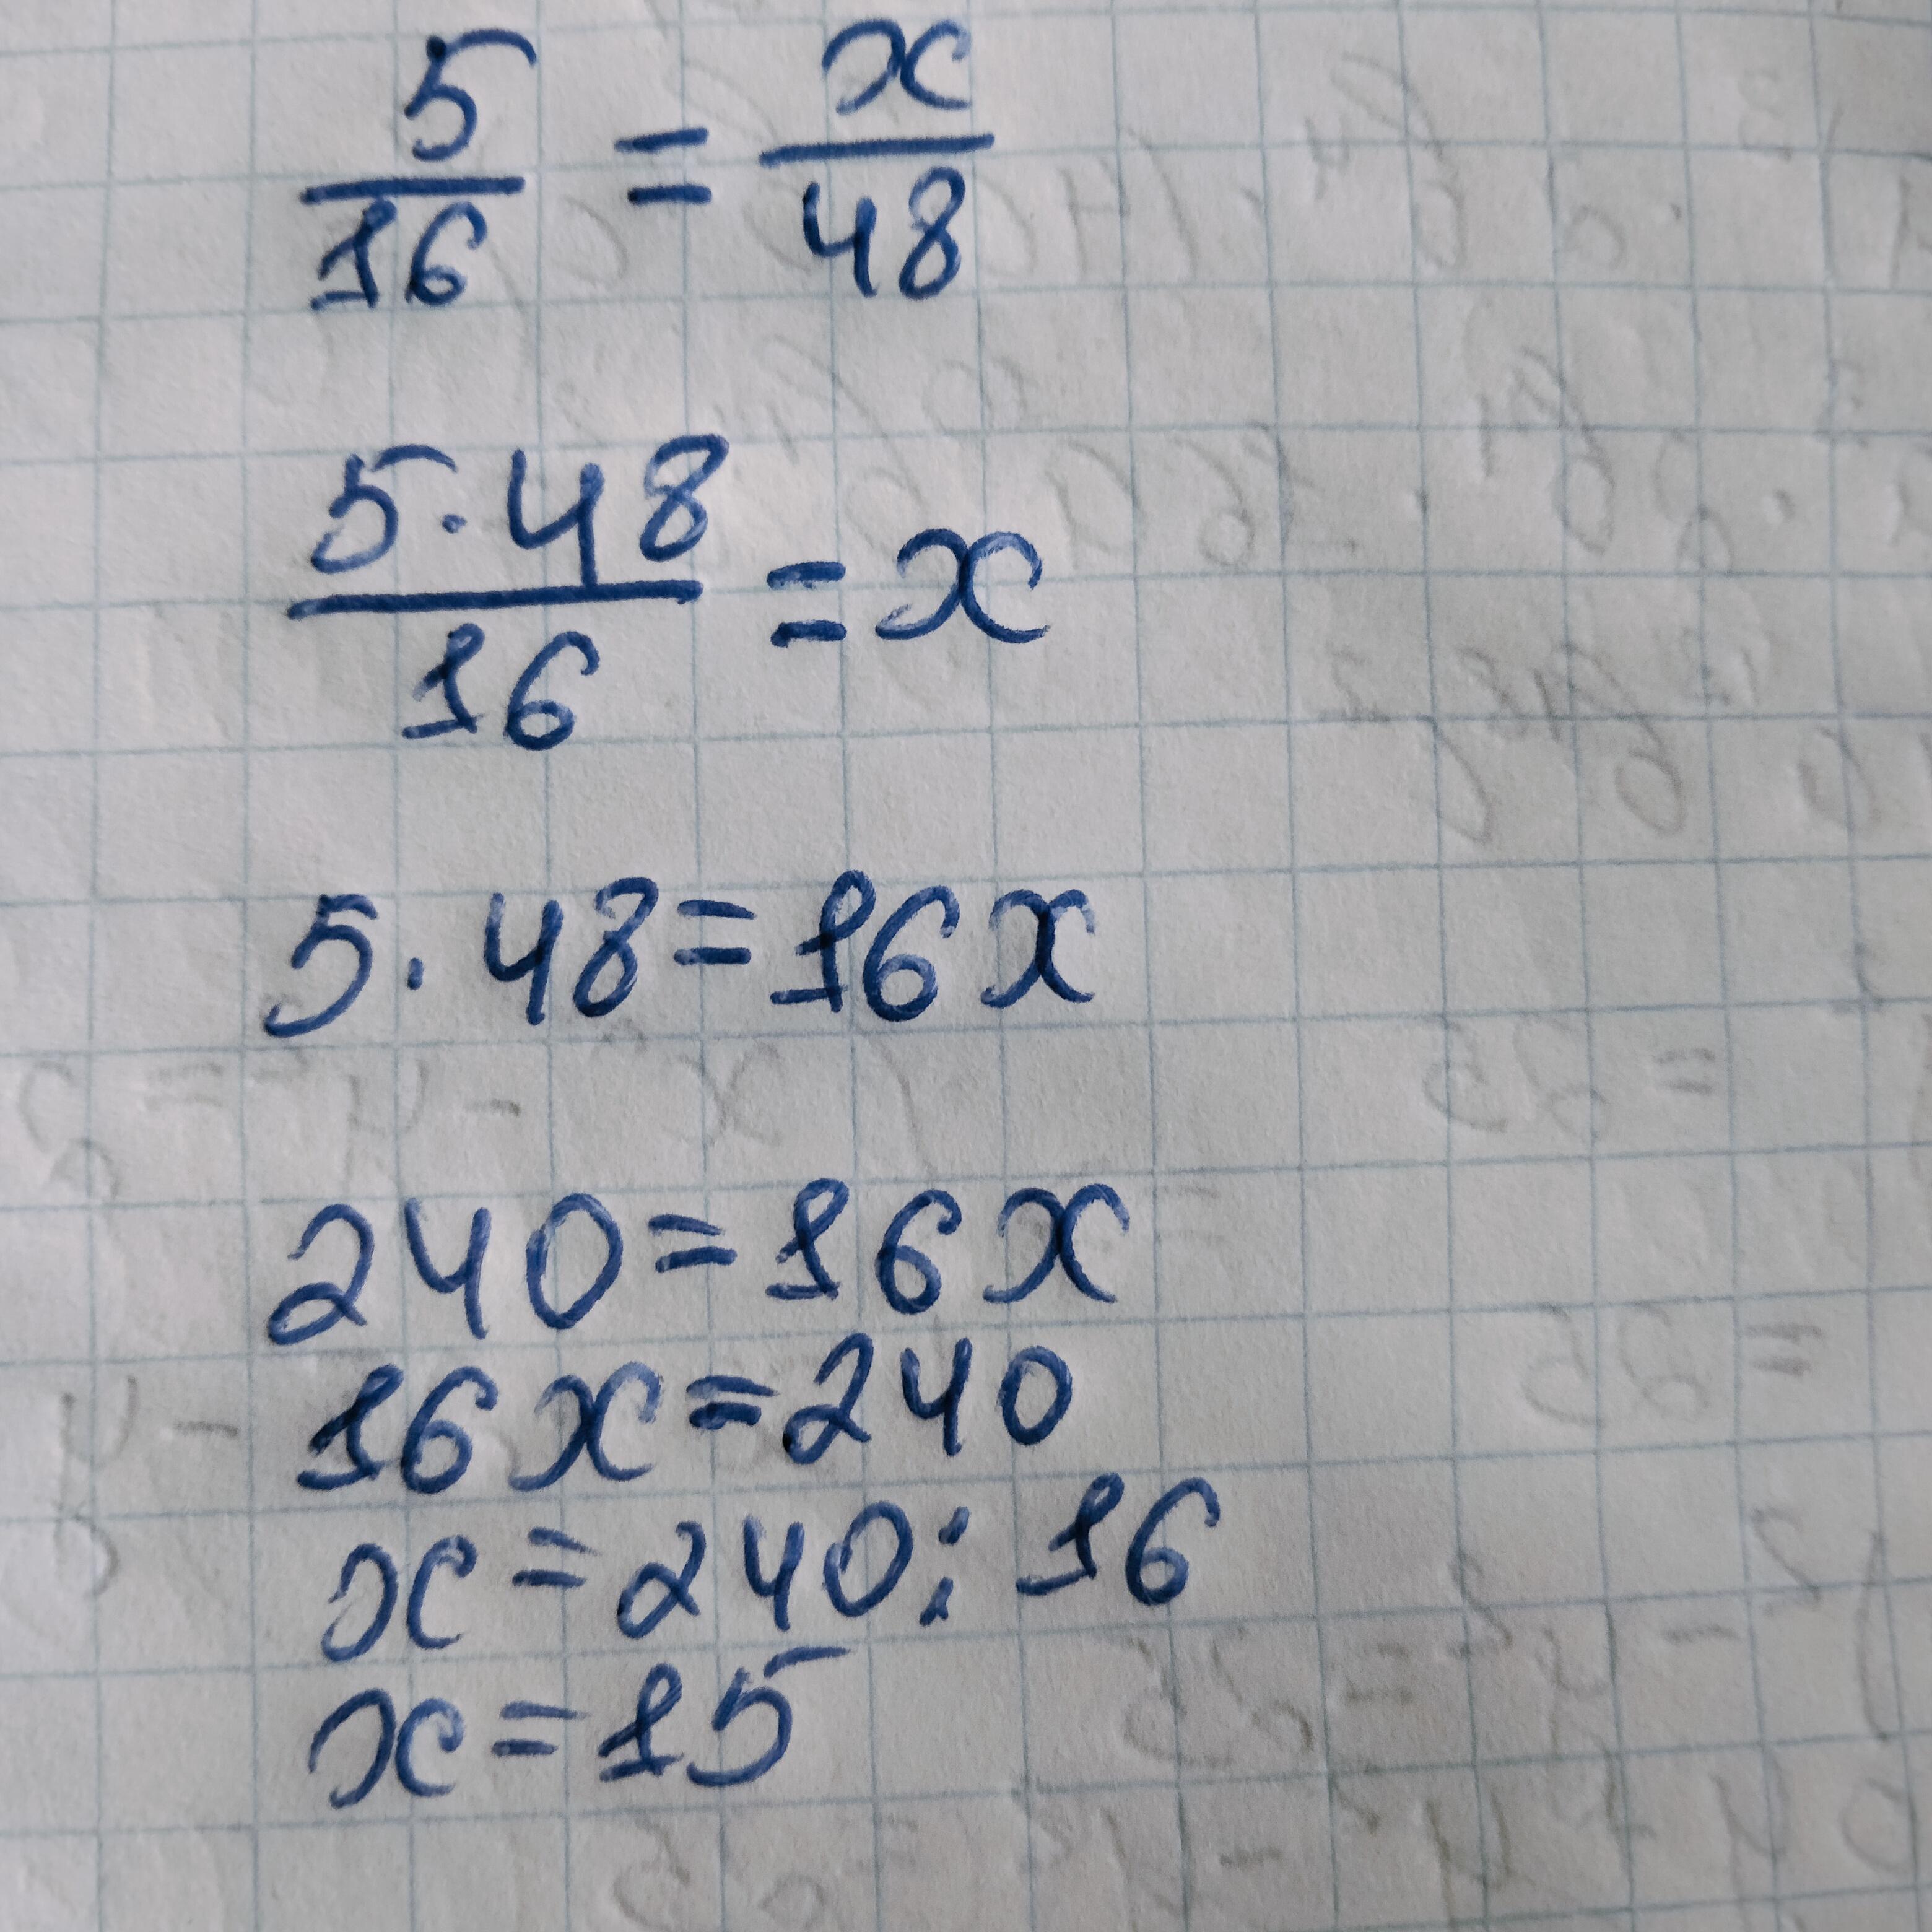 5/16 = x/48
5·48/16 = x
5·48=16x
240=16x
16x=240
x=240:16
x=15